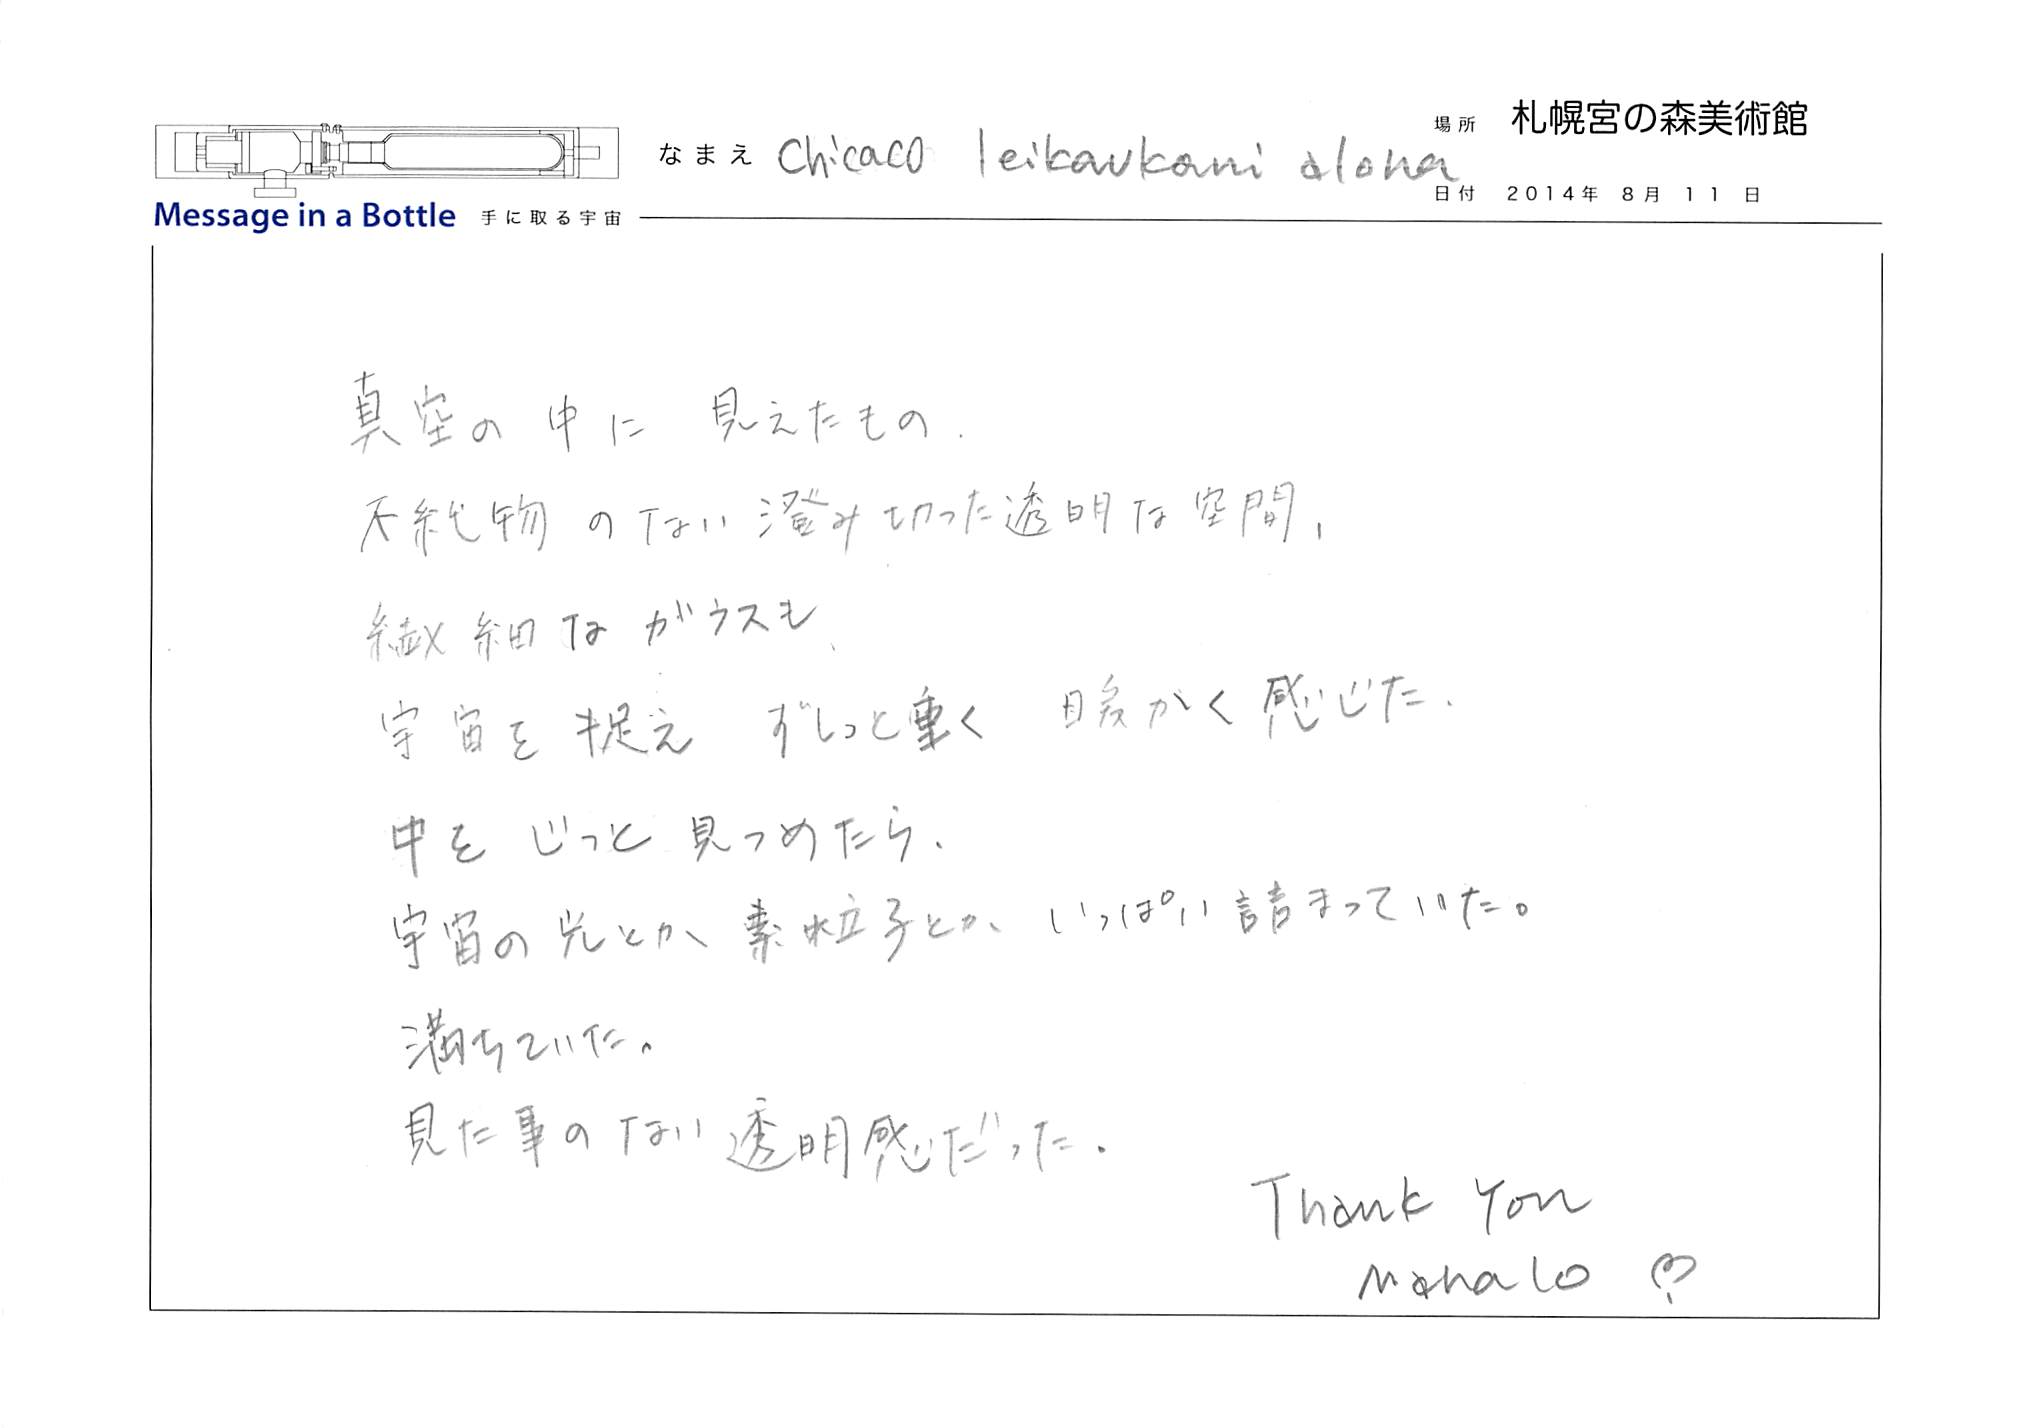 場所 札幌宮の森美術館
なまえ Chicaco leikaukani aloha
日付 2014年 8月 11日
Message in a Bottle 手に取る宇宙
真空の 中に 見えたもの.
不純物 のない 澄み切った透明な空間、
繊細な ガラスも、
宇宙を 捉え ずしっと重く 暖かく感じた.
中を じっと 見つめたら、
宇宙の光とか、素粒子とか、いっぱい詰まっていた。
満ちていた。
見た事のない透明感だった.
Thank You
Mahalo ♡